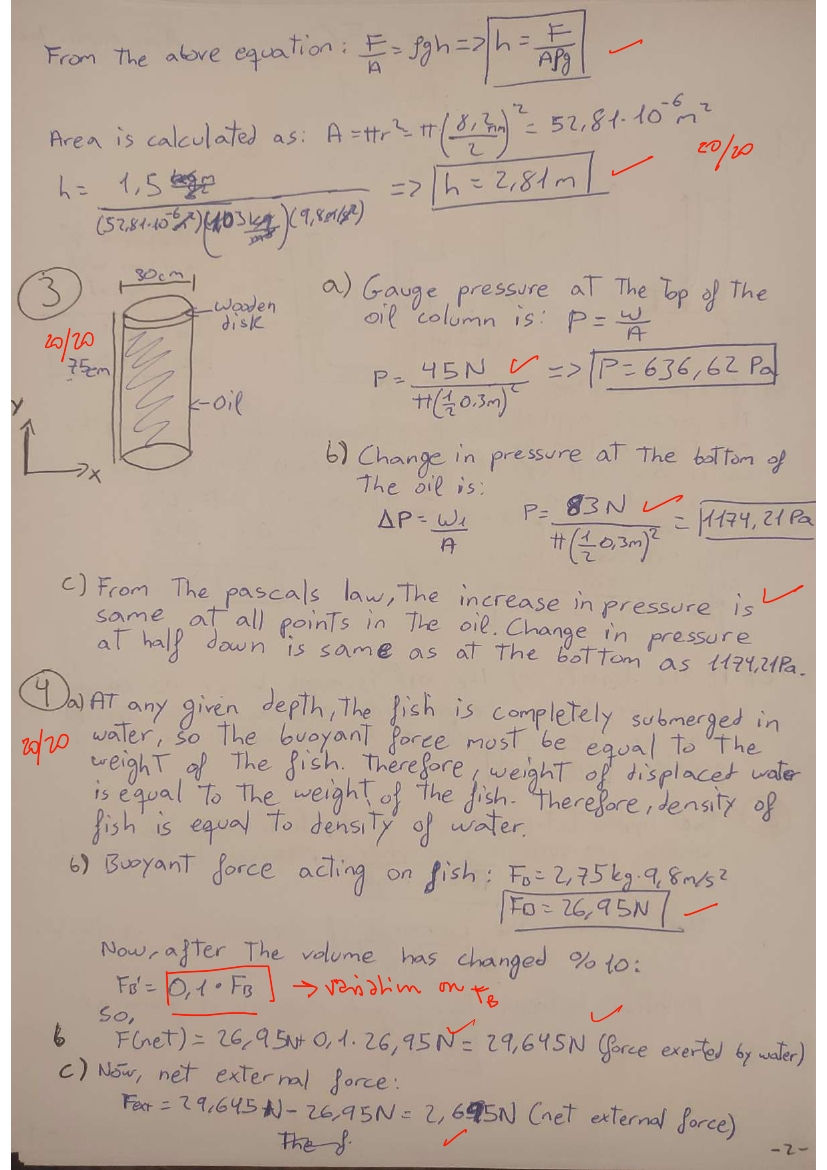 From the above equation: F/A = ρgh => h = F/Aρg
Area is calculated as: A = πr² = π(8,2mm/2)² = 52,81·10⁻⁶ m²
20/20
h = 1,5 / (52,81·10⁻⁶)(103)(9,8m/s²) => h = 2,81 m
3
30cm
wooden
disk
20/20
75cm
Oil
y
x
a) Gauge pressure at the top of the
oil column is: P = w/A
P = 45N / π(1/2 0,3m)² => P = 636,62 Pa
b) Change in pressure at the bottom of
the oil is:
ΔP = w₁/A P = 83N / π(1/2 0,3m)² = 1174,21 Pa
c) From the pascals law, the increase in pressure is
same at all points in the oil. Change in pressure
at half down is same as at the bottom as 1174,21Pa.
4 a) At any given depth, the fish is completely submerged in
20/20 water, so the buoyant force must be equal to the
weight of the fish. Therefore, weight of displaced water
is equal to the weight of the fish. Therefore, density of
fish is equal to density of water.
b) Buoyant force acting on fish: FB = 2,75kg·9,8m/s²
FB = 26,95N
Now, after the volume has changed %10:
FB' = 0,1·FB → variation on FB
So,
b F(net) = 26,95N + 0,1·26,95N = 29,645N (force exerted by water)
c) Now, net external force:
Fext = 29,645N - 26,95N = 2,695N (net external force)
The f.
-2-